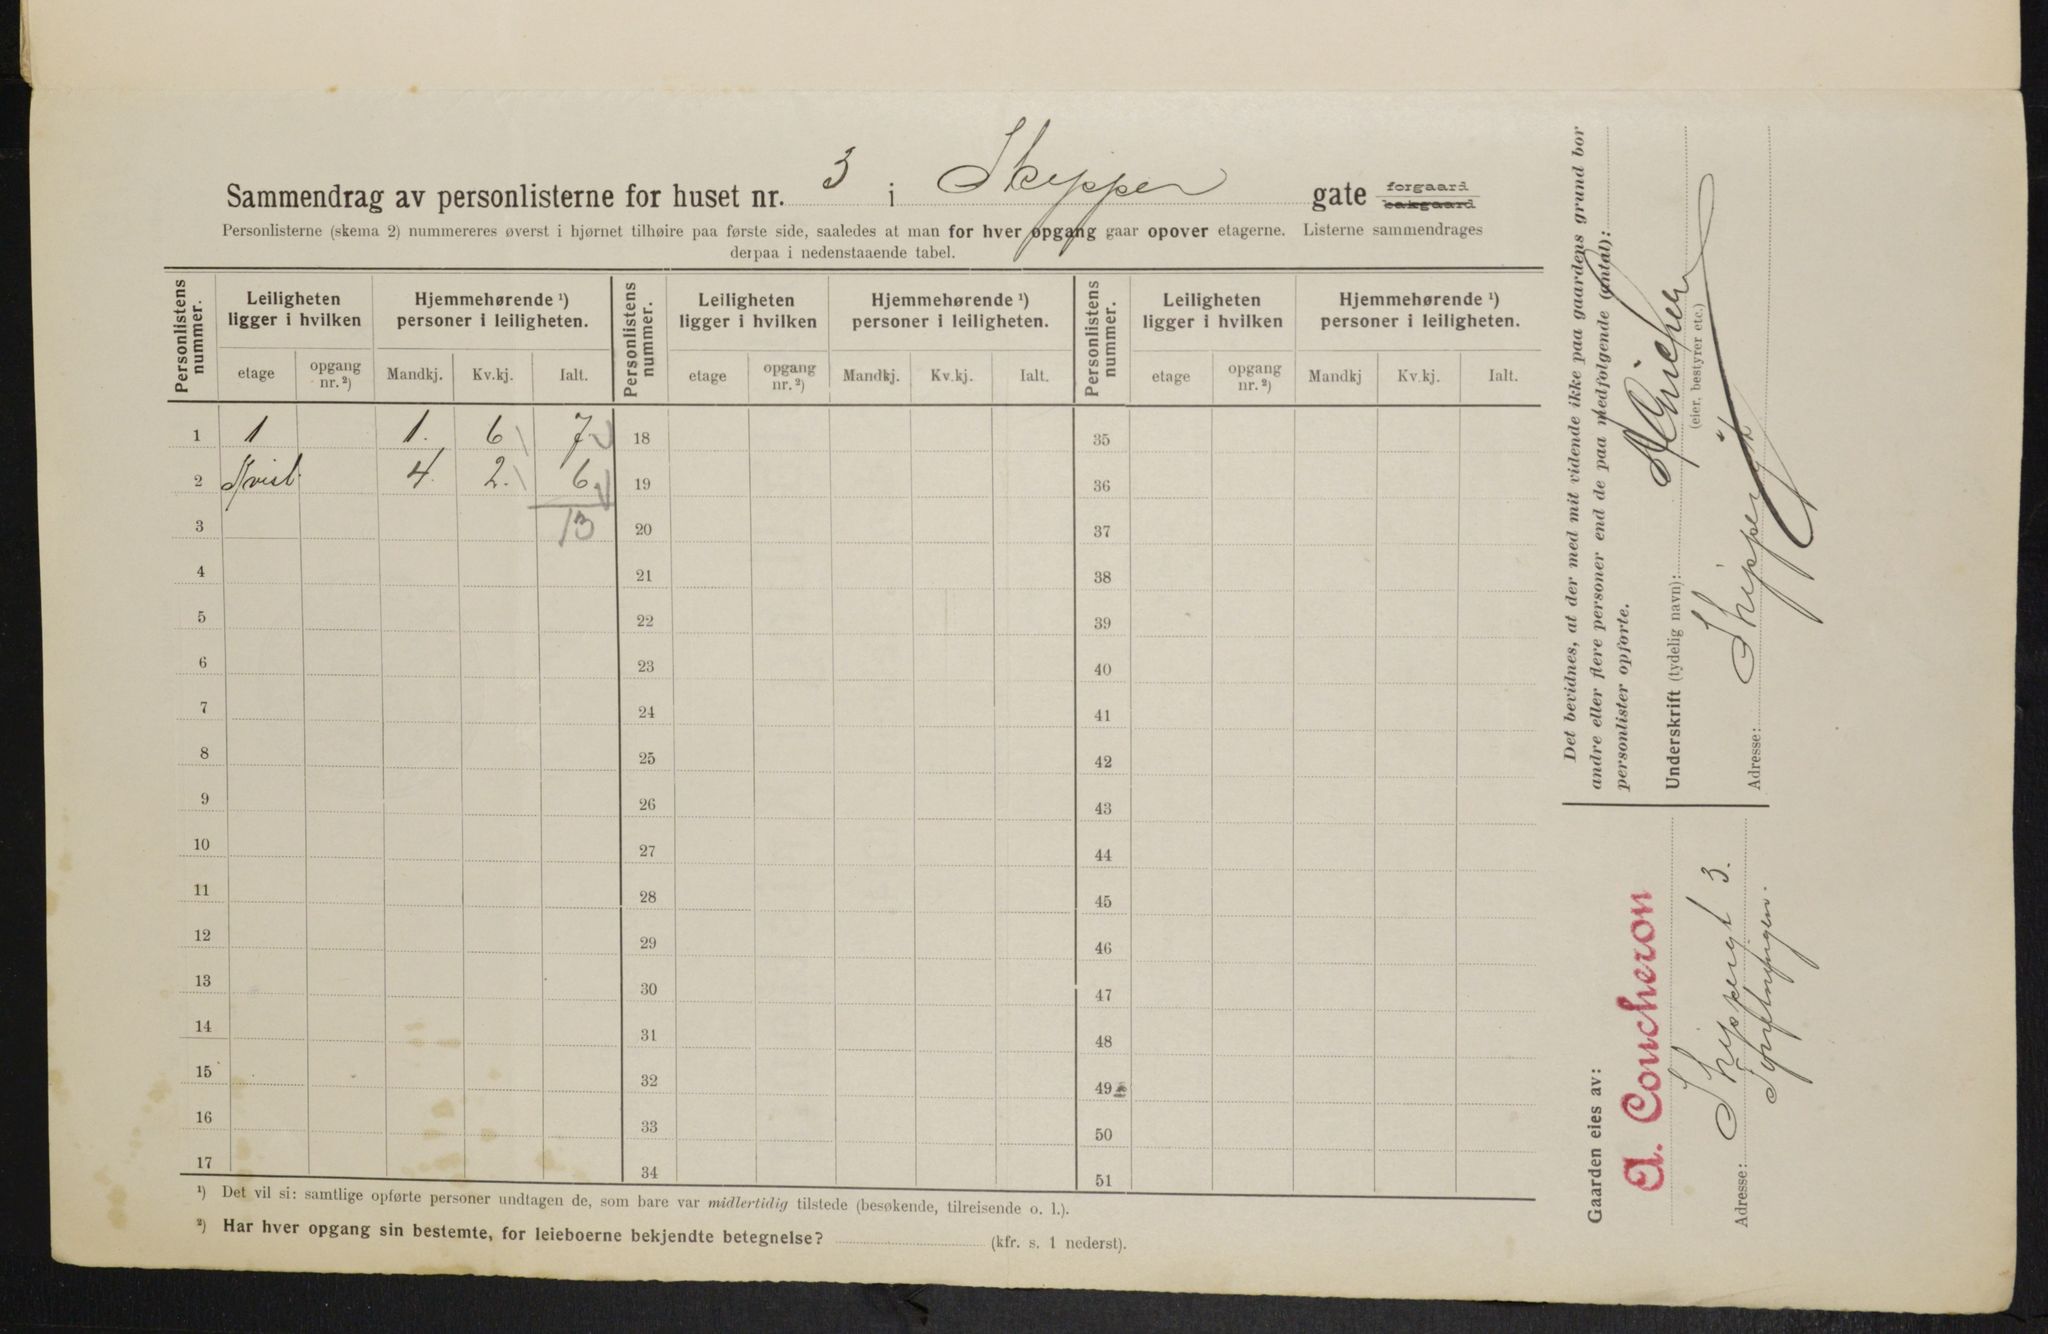 Sammendrag av personlisterne for huset nr. 3 i Skipper gate forgaard
bakgaard
Personlisterne (skema 2) nummereres øverst i hjørnet tilhøire paa første side, saaledes at man for hver opgang gaar opover etagerne. Listerne sammendrages
derpaa i nedenstaaende tabel.
Personlistens nummer. Leiligheten ligger i hvilken Hjemmehørende ¹) personer i leiligheten. Personlistens nummer. Leiligheten ligger i hvilken Hjemmehørende ¹) personer i leiligheten. Personlistens nummer. Leiligheten ligger i hvilken Hjemmehørende ¹) personer i leiligheten.
etage opgang nr. ²) Mandkj. Kv.kj. Ialt. etage opgang nr. ²) Mandkj. Kv.kj. Ialt. etage opgang nr. ²) Mandkj Kv.kj. Ialt.
1 1 1. 6 7. 18 35
2 Kvist. 4. 2. 6 19 36
3 13 20 37
4 21 38
5 22 39
6 23 40
7 24 41
8 25 42
9 26 43
10 27 44
11 28 45
12 29 46
13 30 47
14 31 48
15 32 49
16 33 50
17 34 51
¹) Det vil si: samtlige opførte personer undtagen de, som bare var midlertidig tilstede (besøkende, tilreisende o. l.).
²) Har hver opgang sin bestemte, for leieboerne bekjendte betegnelse? (kfr. s. 1 nederst).
Det bevidnes, at der med mit vidende ikke paa gaardens grund bor
andre eller flere personer end de paa medfølgende (antal):
personlister opførte.
Underskrift (tydelig navn):
(eier, bestyrer etc.)
Adresse: Skippergt
Gaarden eies av:
A. Coucheron
Adresse: Skippergt 3.